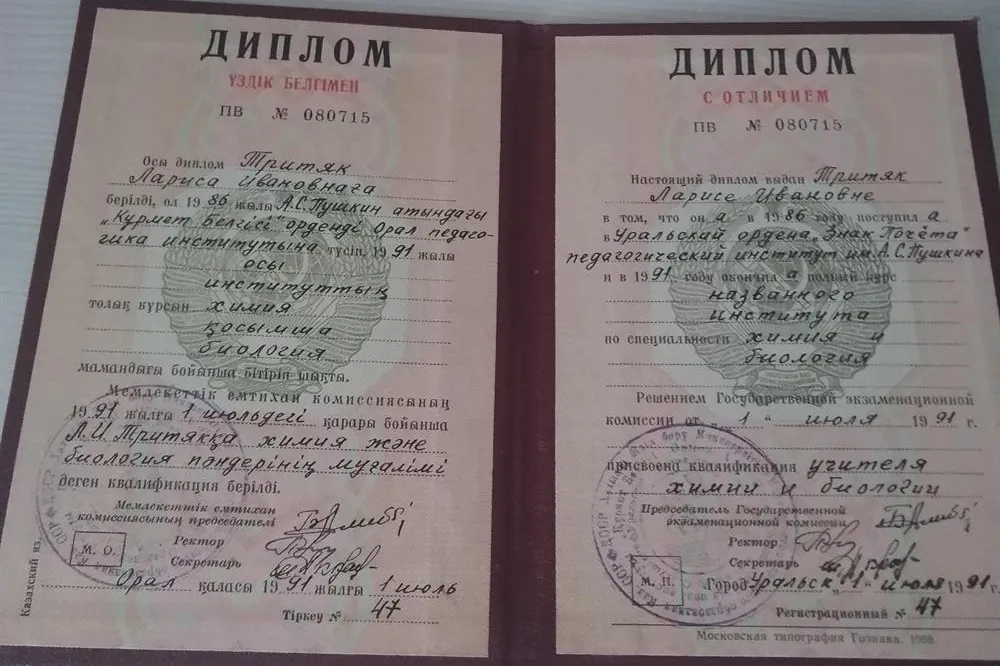 ДИПЛОМ
ҮЗДІК БЕЛГІМЕН
ПВ № 080715
Осы диплом Тритяк
Лариса Ивановнаға
берілді, ол 1986 жылы А.С.Пушкин атындағы
„Құрмет Белгісі" орденді Орал педаго-
гика институтына түсіп, 1991 жылы
осы
институттың
толық курсын химия
қосымша
биология
мамандығы бойынша бітіріп шықты.
Мемлекеттік емтихан комиссиясының
1991 жылғы 1 июльдегі қарары бойынша
Л.И.Тритякқа химия және
биология пәндерінің мұғалімі
деген квалификация берілді.
Мемлекеттік емтихан
комиссиясының председателі
Ректор
Секретарь
М. О.
Орал қаласы 1991 жылғы 1 июль
Тіркеу № 47
Казахский яз.
ДИПЛОМ
С ОТЛИЧИЕМ
ПВ № 080715
Настоящий диплом выдан Тритяк
Ларисе Ивановне
в том, что она в 1986 году поступила
в Уральский ордена „Знак Почёта"
педагогический институт им.А.С.Пушкина
и в 1991 году окончила полный курс
названного
института
по специальности химия и
биология
Решением Государственной экзаменационной
комиссии от „ 1 " июля 1991 г.
присвоена квалификация учителя
химии и биологии
Председатель Государственной
экзаменационной комиссии
Ректор
Секретарь
М. П.
Город Уральск „1" июля 1991 г.
Регистрационный № 47
Московская типография Гознака.